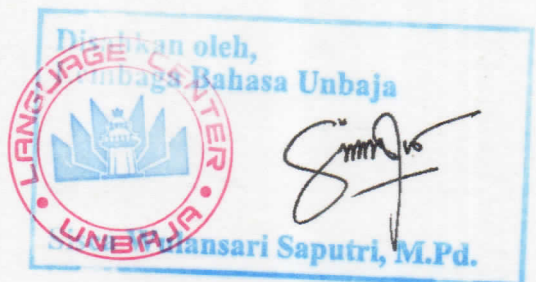 Disahkan oleh,
Lembaga Bahasa Unbaja
LANGUAGE CENTER
UNBAJA
Wulansari Saputri, M.Pd.